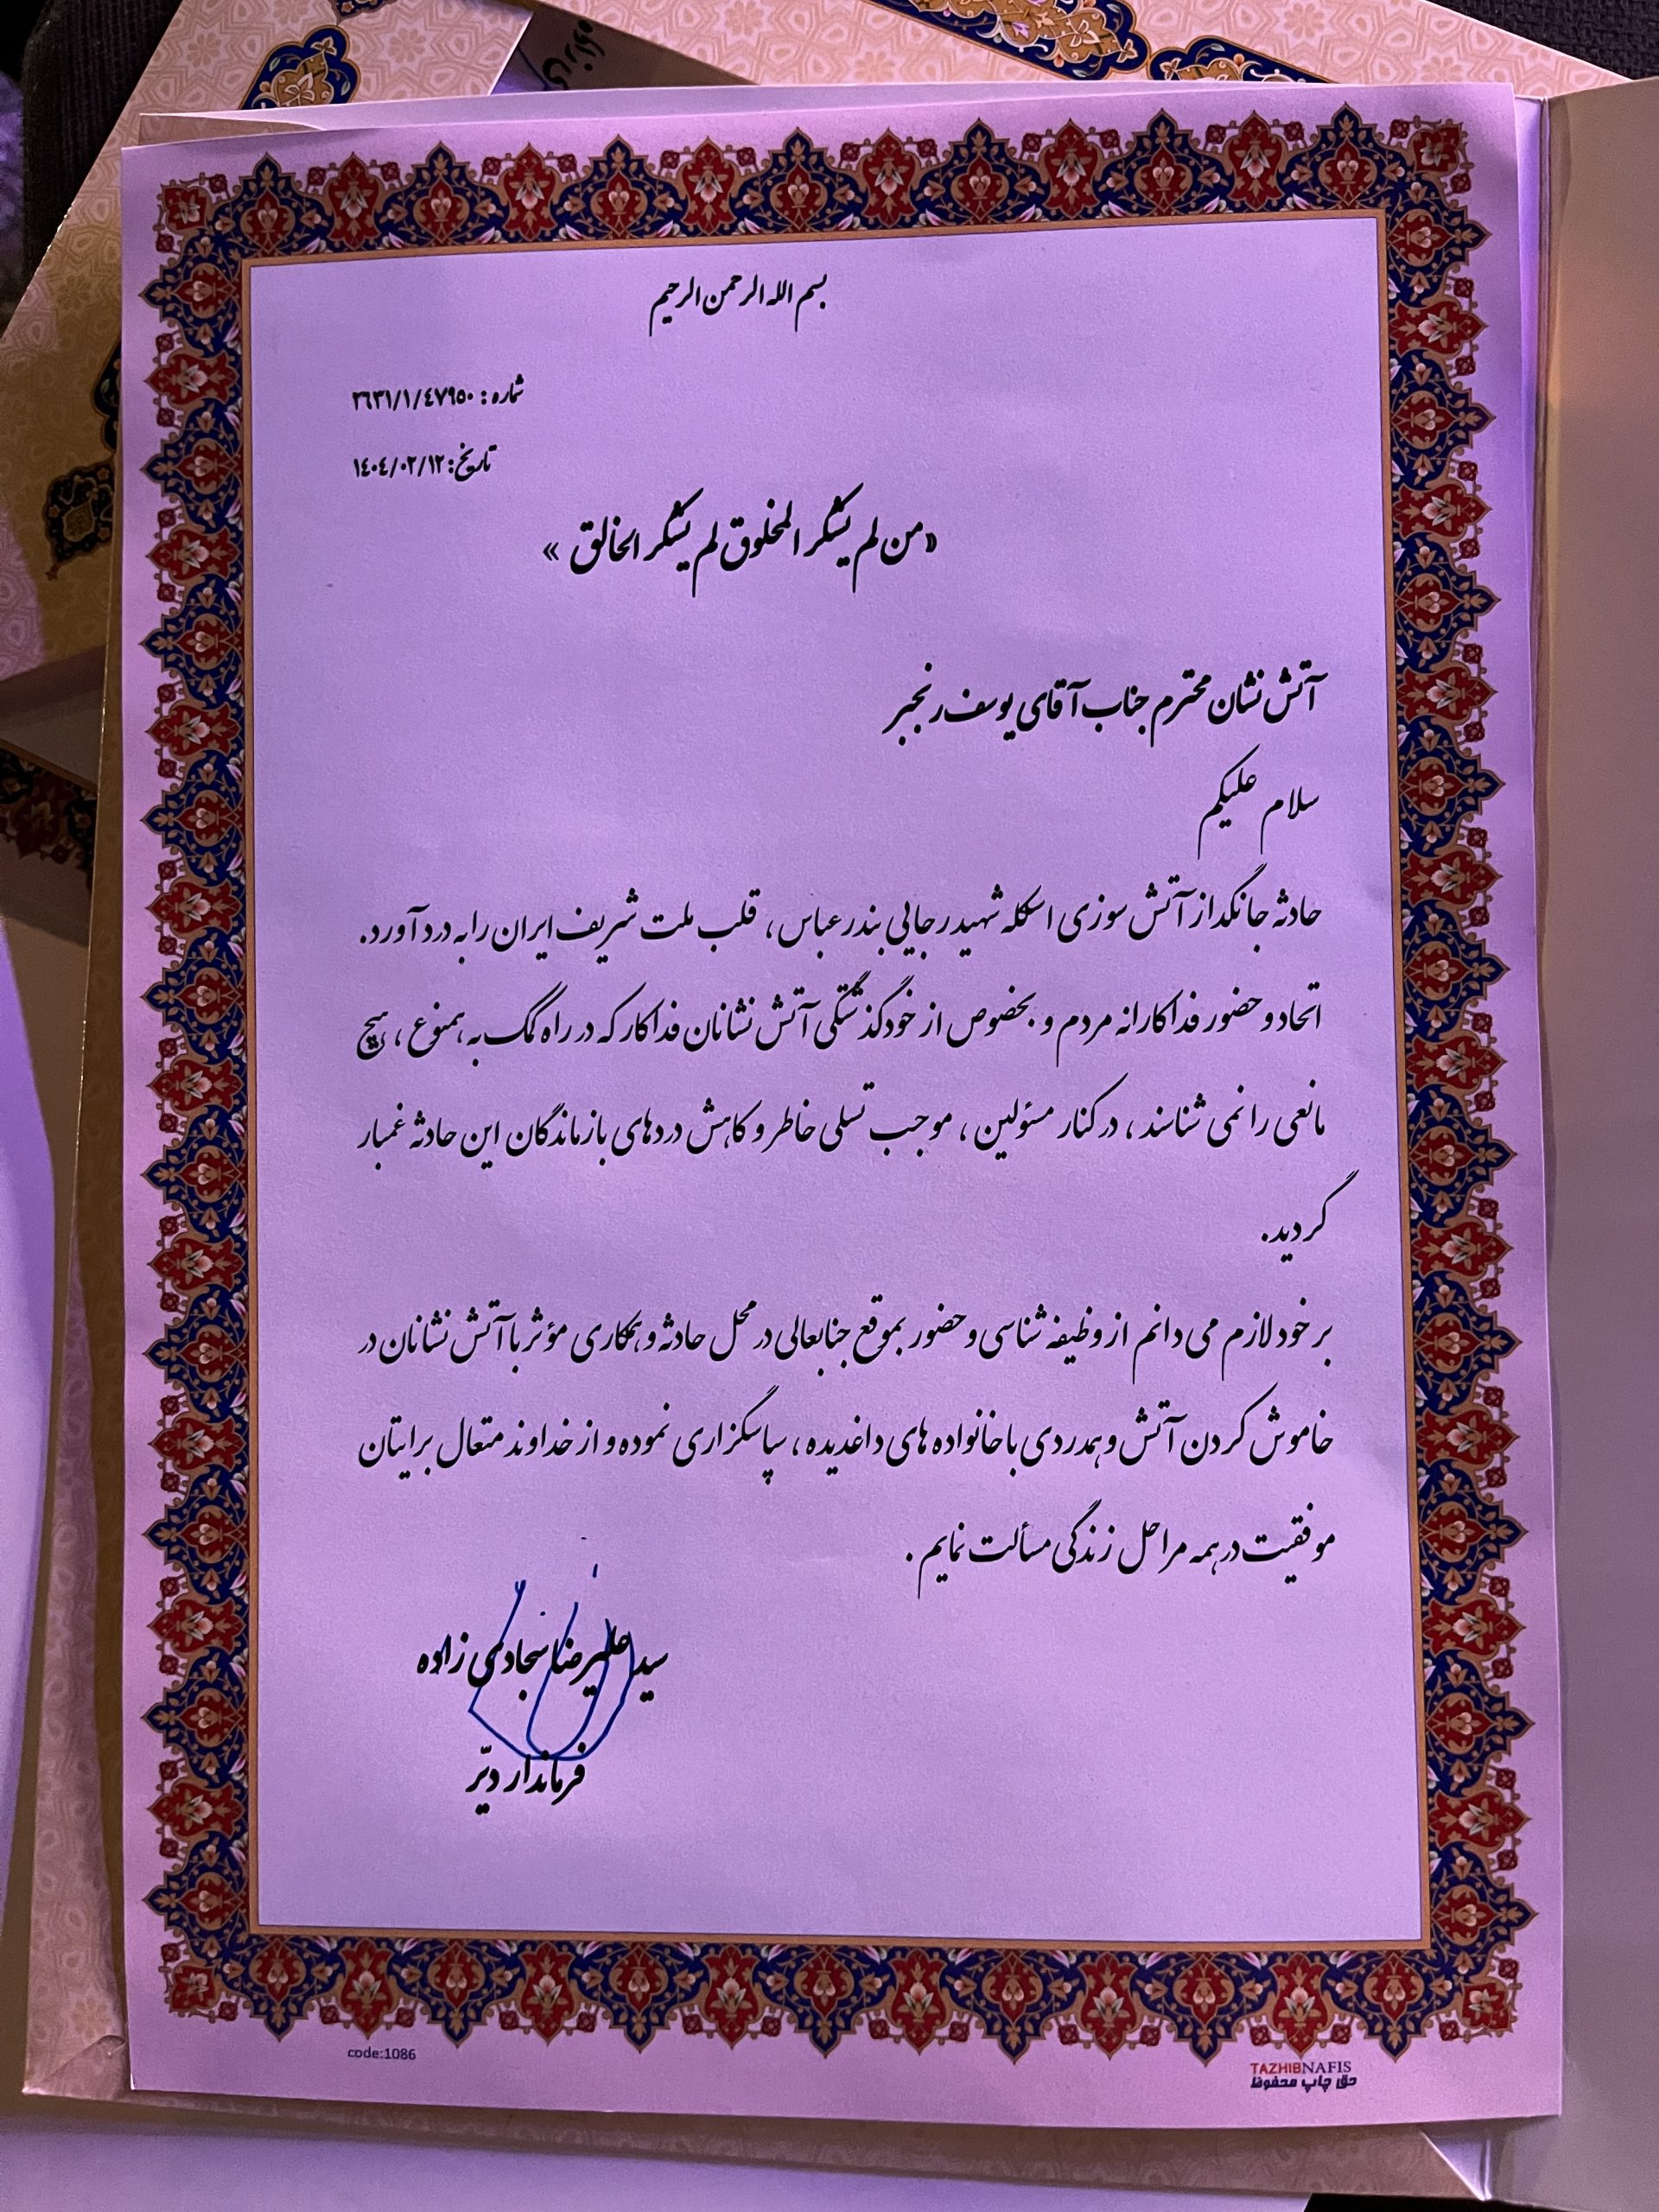 بسم الله الرحمن الرحیم
شماره : ۲۶۳۱/۱/٤۷۹۵۰
تاریخ: ۱٤۰٤/۰۲/۱۲
«من لم یشکر المخلوق لم یشکر الخالق »
آتش نشان محترم جناب آقای یوسف رنجبر
سلام علیکم
حادثه جانگداز آتش سوزی اسکله شهید رجایی بندرعباس ، قلب ملت شریف ایران را به درد آورد.
اتحاد و حضور فداکارانه مردم و بخصوص از خودگذشتگی آتش نشانان فداکار که در راه کمک به همنوع ، هیچ
مانعی را نمی شناسند ، در کنار مسئولین ، موجب تسلی خاطر و کاهش دردهای بازماندگان این حادثه غمبار
گردید.
بر خود لازم می دانم از وظیفه شناسی و حضور بموقع جنابعالی در محل حادثه و همکاری مؤثر با آتش نشانان در
خاموش کردن آتش و همدردی با خانواده های داغدیده ، سپاسگزاری نموده و از خداوند متعال برایتان
موفقیت در همه مراحل زندگی مسألت نمایم .
سید علیرضا سجادی زاده
فرماندار دیّر
code:1086
TAZHIBNAFIS
حق چاپ محفوظ